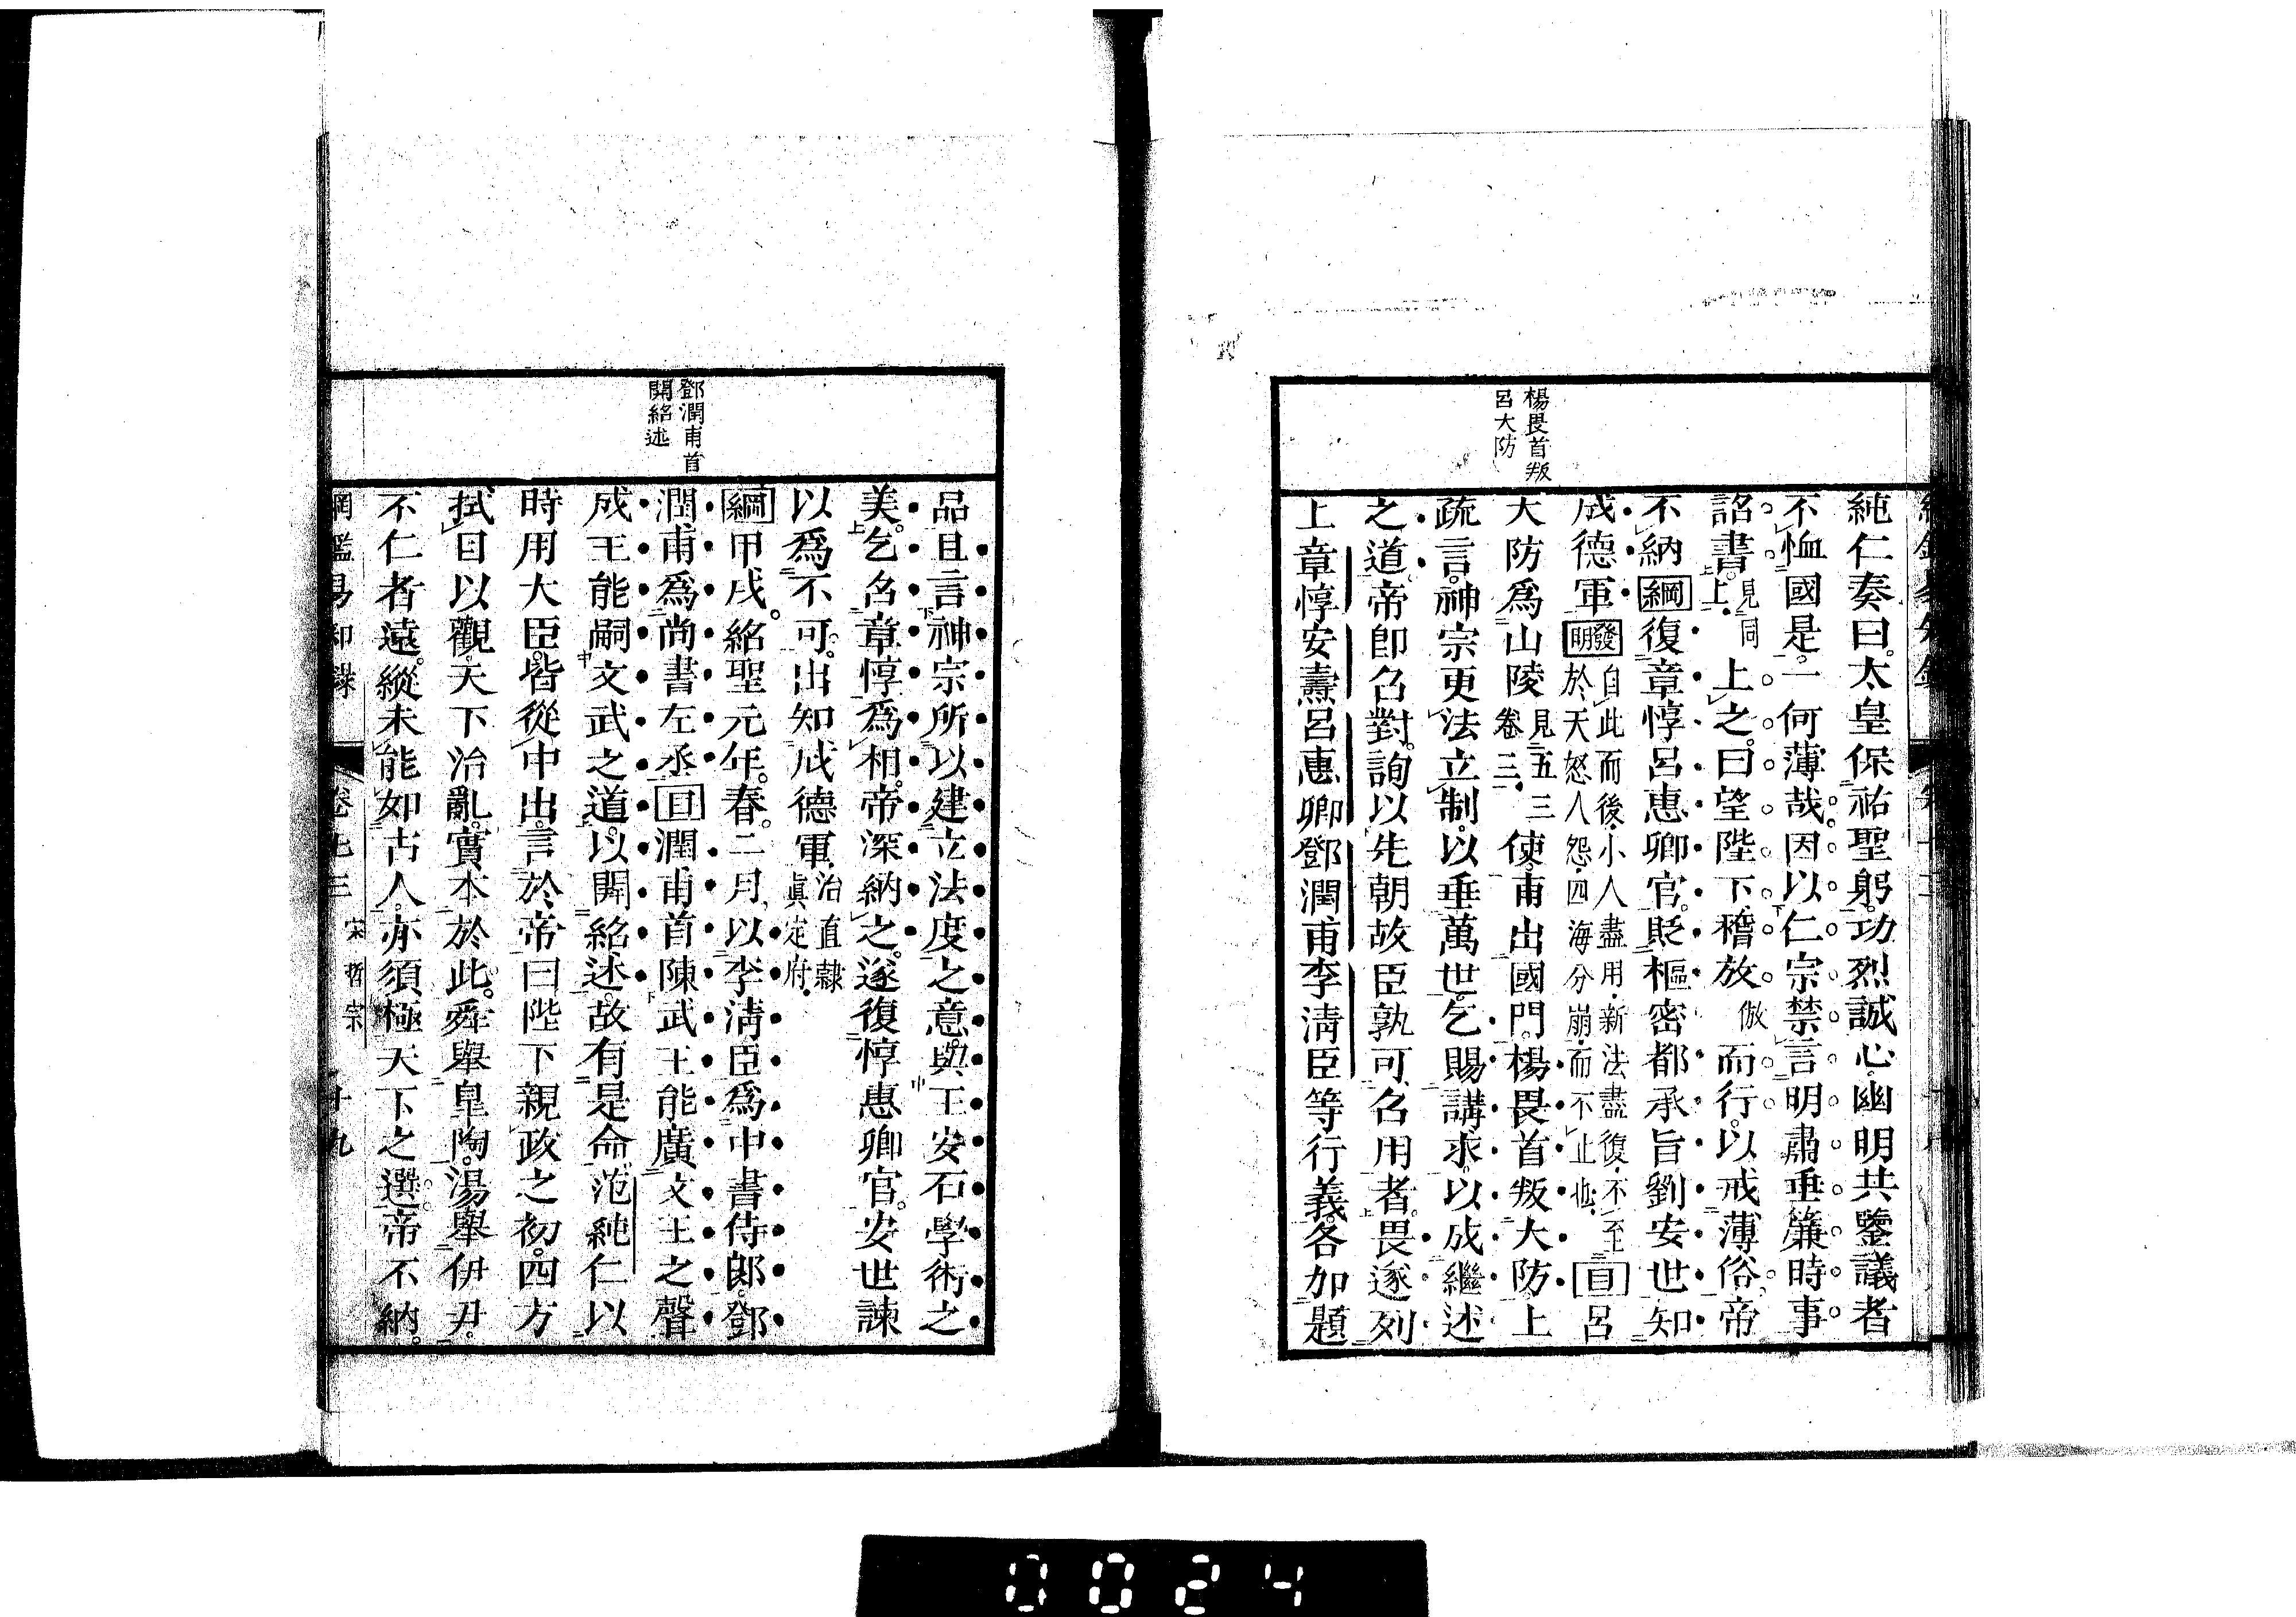 楊畏首叛
呂大防
純仁奏曰太皇保祐聖躬功烈誠心幽明共鑒議者
不恤國是一何薄哉因以仁宗禁言明肅垂簾時事
詔書上見同上之曰望陛下稽放倣而行以戒薄俗帝
不納綱復章惇呂惠卿官貶樞密都承旨劉安世知
成德軍發明自此而後小人盡用新法盡復不至於天怒人怨四海分崩而不止也目呂
大防爲山陵見五三卷三使甫出國門楊畏首叛大防上
疏言神宗更法立制以垂萬世乞賜講求以成繼述
之道帝卽召對詢以先朝故臣孰可召用者畏遂列
上章惇安燾呂惠卿鄧潤甫李淸臣等行義各加題
鄧潤甫首
開紹述
品且言神宗所以建立法度之意與王安石學術之
美乞召章惇爲相帝深納之遂復惇惠卿官安世諫
以爲不可出知成德軍治直隸眞定府
綱甲戌紹聖元年春二月以李淸臣爲中書侍郞鄧
潤甫爲尚書左丞目潤甫首陳武王能廣文王之聲
成王能嗣文武之道以開紹述故有是命范純仁以
時用大臣皆從中出言於帝曰陛下親政之初四方
拭目以觀天下治亂實本於此舜舉皐陶湯舉伊尹
不仁者遠縱未能如古人亦須極天下之選帝不納
綱鑑易知錄 卷七三 宋哲宗 十九
0024